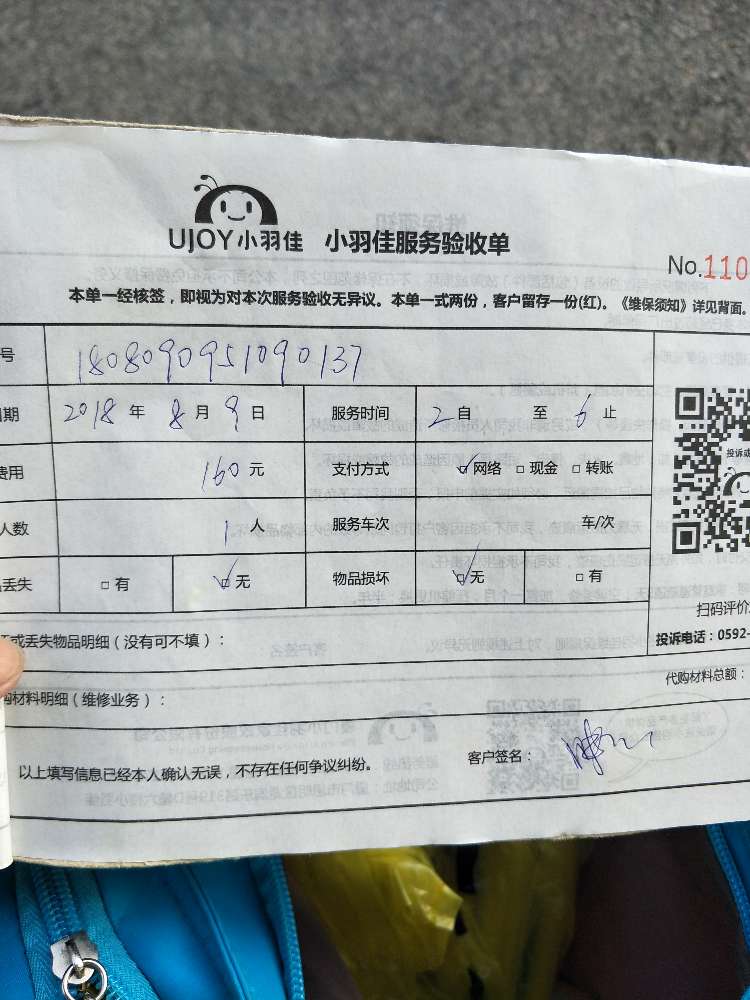 UJOY小羽佳 小羽佳服务验收单
No.110
本单一经核签，即视为对本次服务验收无异议。本单一式两份，客户留存一份(红)。《维保须知》详见背面。
号 1808090951090137
期 2018 年 8 月 9 日 服务时间 2 自 至 6 止
费用 160 元 支付方式 ☑网络 □现金 □转账
人数 1 人 服务车次 车/次
丢失 □有 ☑无 物品损坏 ☑无 □有
投诉或
扫码评价
投诉电话：0592-
或丢失物品明细（没有可不填）：
代购材料总额：
购材料明细（维修业务）：
以上填写信息已经本人确认无误，不存在任何争议纠纷。 客户签名：